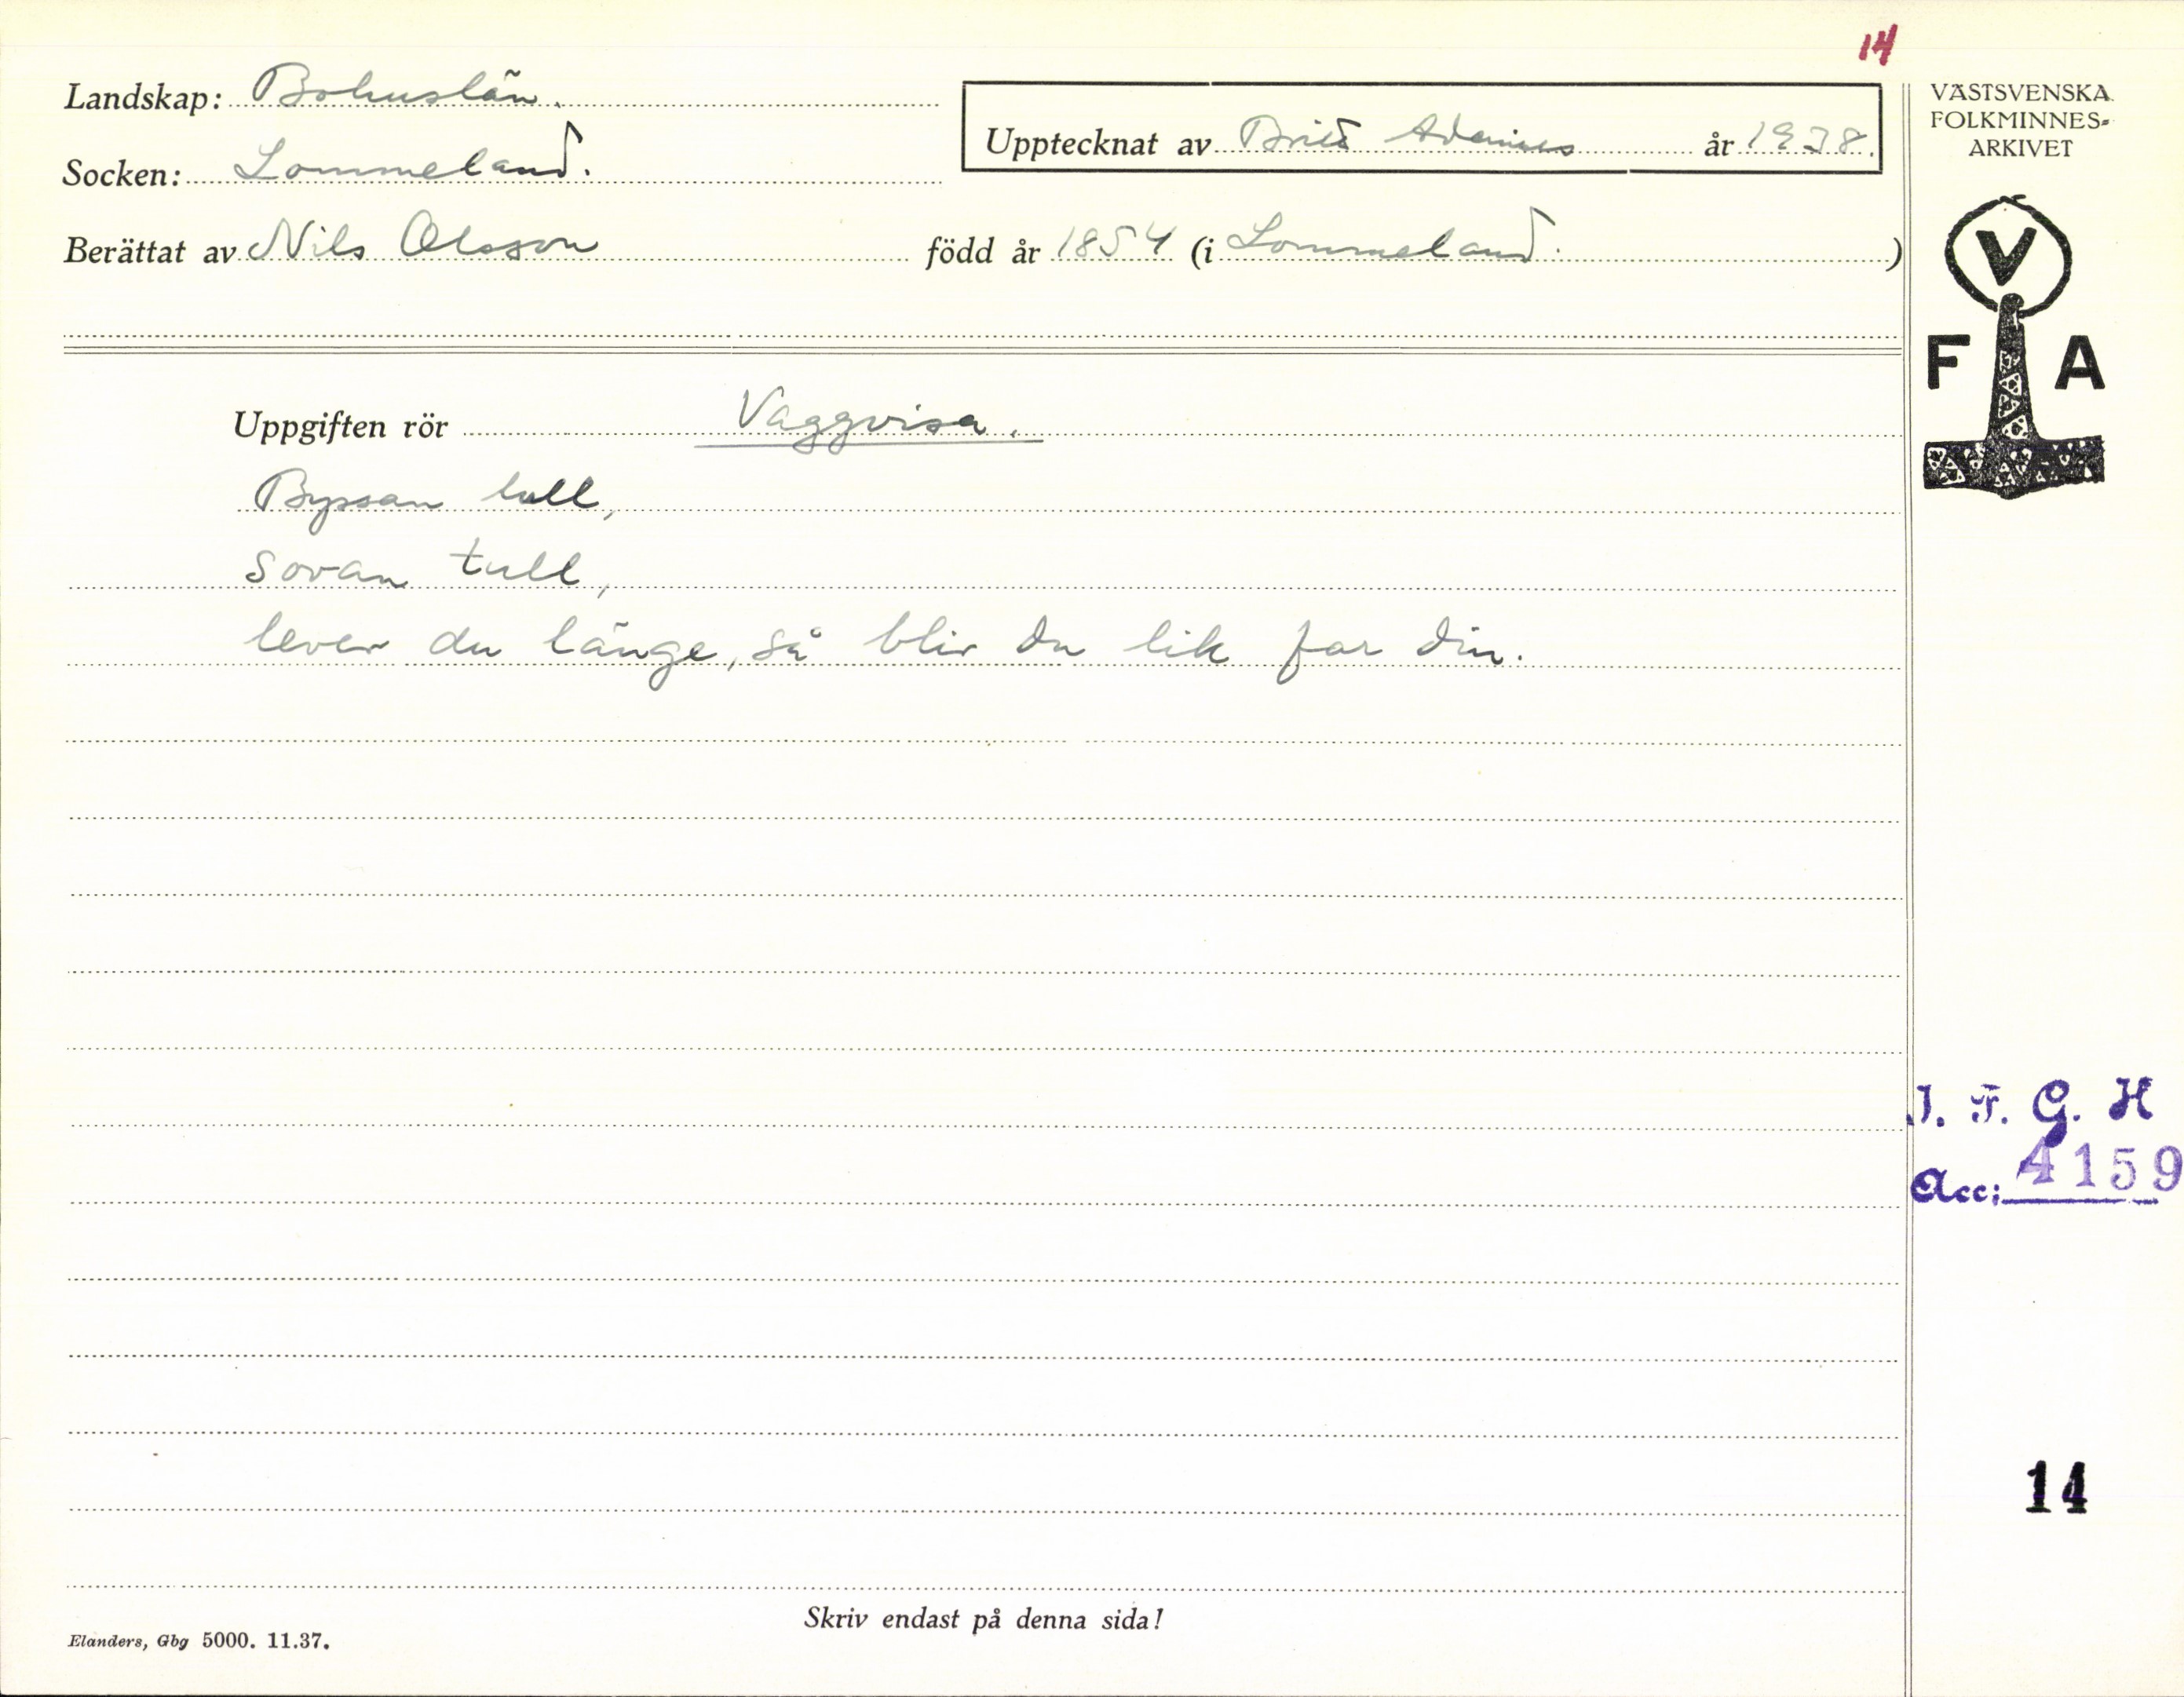 14
Landskap: Bohuslän.
Upptecknat av Brita Adenius år 1938.
Socken: Lommeland.
Berättat av Nils Olsson född år 1854 (i Lommeland. )
VÄSTSVENSKA
FOLKMINNES-
ARKIVET
V
F A
Uppgiften rör Vaggvisa.
Byssan lull,
sovan tull,
lever du länge, så blir du lik far din.
I. F. G. H
Acc: 4159
14
Skriv endast på denna sida!
Elanders, Gbg 5000. 11.37.